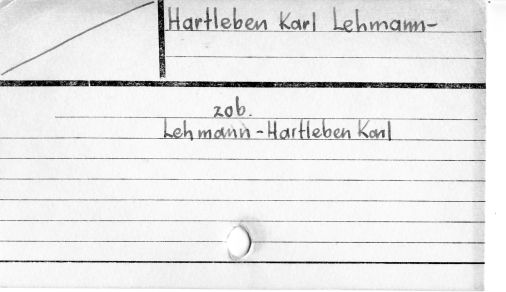 Hartleben Karl Lehmann-
zob.
Lehmann-Hartleben Karl